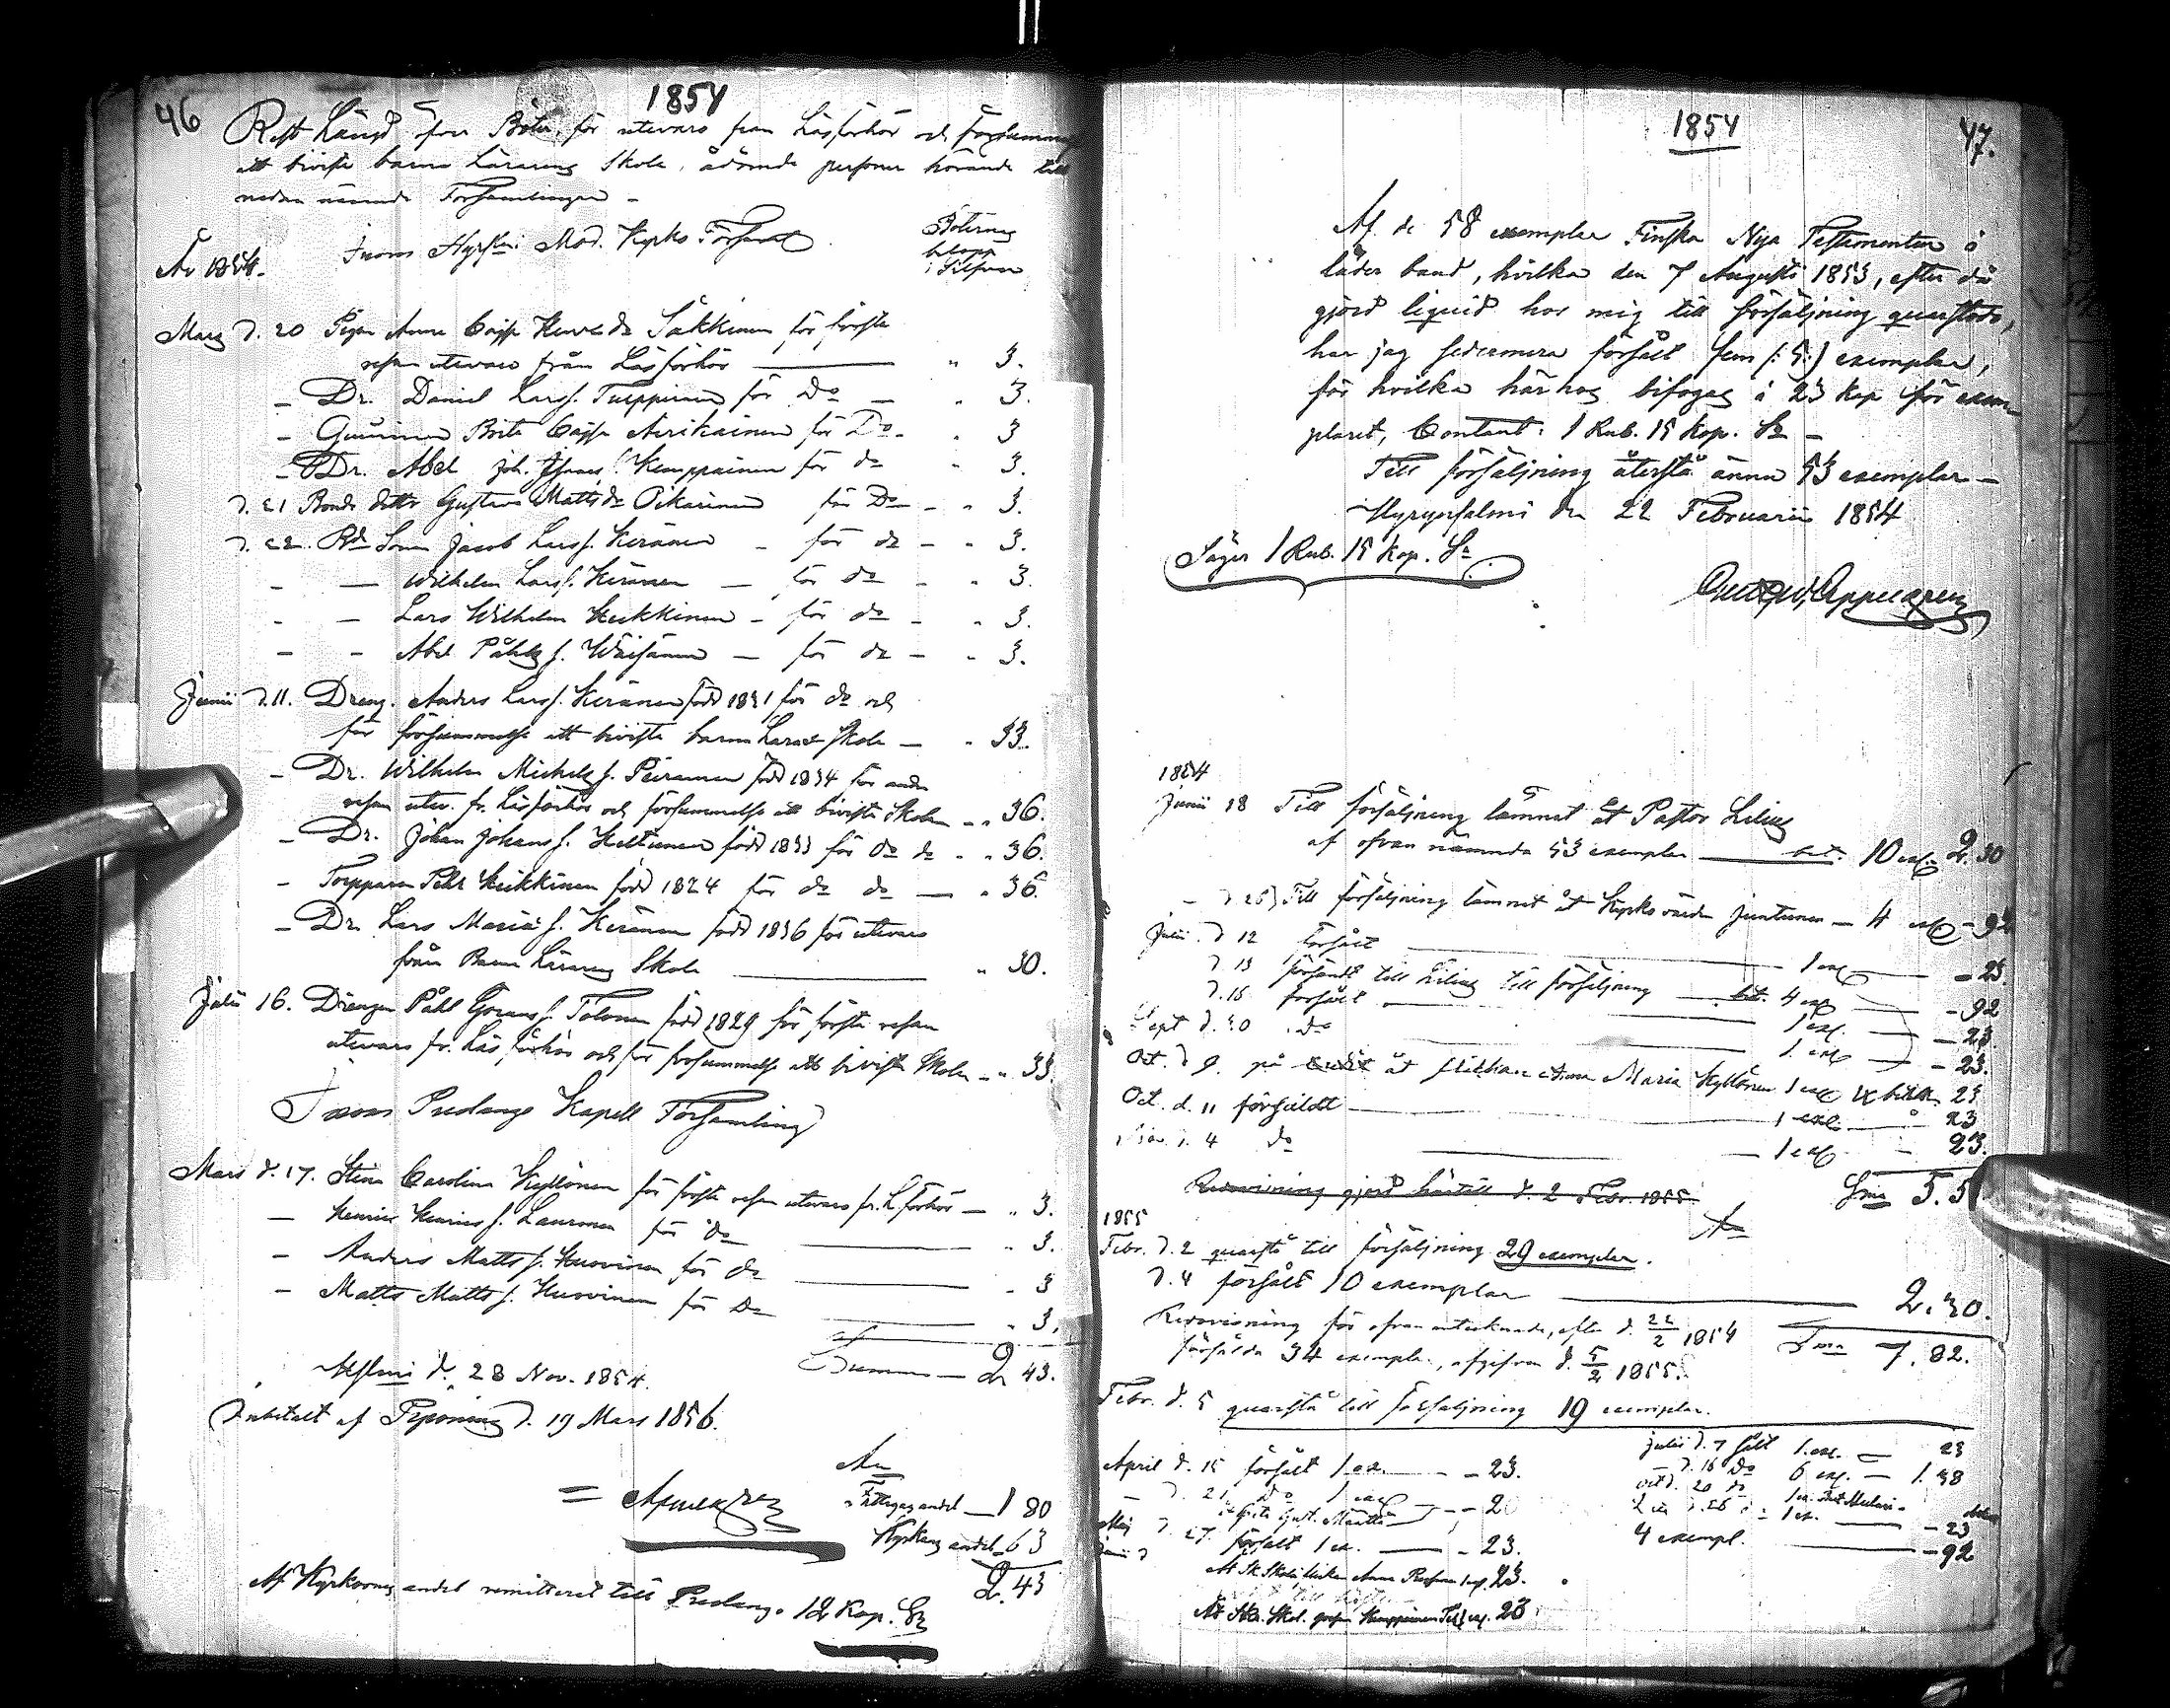 46
1854
Rest Längd öfver Böter, för utevaro från Läsförhör och försummelse
att bivista barna Lärarens Skola, ådömde personer hörande till
nedan nämnde Församlingar -
År 1854. Inom Hyrsalmi Mod. Kyrko Församl
Böternes
belopp
i Silfver
Mars d. 20 Pigan Anna Cajsa Sakkinen för första
resan utevaro från Läsförhör — " 3.
- Dr. Daniel Larsf. Turppinen för Do — " 3.
- Qvinnan Brita Cajsa för Do - " 3
- Dr. Abel Joh. Kemppainen för do " 3.
d. 21 Bonde dottr Gustava Mattsdr Pikarinen för Do - " 3.
d. 22. Bd Sonen Jacob Larsf. Keränen - för do - " 3.
- — Wilhelm Larsf. Keränen — för do - " 3.
- — Lars Wilhelm Heikkinen - för do - " 3.
- - Abel Påhls f. Väisänen — för do - " 3.
Junii d. 11. Dreng. Anders Larsf. Keränen född 1831 för do och
för försummelse att bivista barna Lärar Skola — " 33.
- Dr. Wilhelm Michels f. Piirainen född 1834 för andra
resan utev. fr. Läsförhör och försummelse att bivista skolan - " 36.
- Dr. Johan Johans f. Keltunen född 1833 för do do - " 36.
- Torpparen Pehr Heikkinen född 1824 för do do — " 36.
- Dr. Lars Mariæ f. Keränen född 1836 för utevaro
från Barna Lärarens Skola — " 30.
Julii 16. Drengen Påhl Görans f. Tolonen född 1829 för första resan
utevaro fr. Läs förhör och för försummelse att bivista Skolan - " 33.
Inom Puolango Kapell Församling
Mars d. 17. Stina Carolina Kyllönen för första resan utevaro fr. L förhör — " 3.
— Henric Henrics f. Lauronen för do — " 3.
- Anders Matts f. Huovinen för do — - 3
- Matts Matts f. Huovinen för Do — " 3.
Summa — 2. 43.
Hyrsalmi d. 28 Nov. 1854.
Inbetalt af d. 19 Mars 1856.
= Appelgren
Fattigas andel — 1 80
Kyrkans andel - 63
2. 43
Af Kyrkornes andel remitterat till Puolango 12 Kop. Sr
1854
47.
Af de 58 exemplar Finska Nya Testamenten i
läder band, hvilka den 7 Augusti 1853, efter då
gjord liquid hos mig till försäljning quarstodo,
har jag sedermera försålt fem (:5:) exemplar,
för hvilka härhos bifogas à 23 kop för exem-
plaret, Contant: 1 Rub. 15 kop. Sr -
Till försäljning återstå ännu 53 exemplar -
Hyrynsalmi den 22 Februarii 1854
Säger 1 Rub. 15 kop. Sr
Appelgren
1854
Junii 18 Till försäljning lämnat åt Pastor Lilius
af ofvan nämnda 53 exemplar — bet. 10 ex. 2. 30
- d. 25 Till försäljning lämnat åt Kyrko värden Juntunen — 4 ex - 92
Julii d 12 försålt — 1 ex — - 23.
d. 13 försändt till Lilius till försäljning — bet. 4 ex — - 92
d. 16 försålt — 1 ex. — - 23
Sept d. 30 do — 1 ex — - 23.
Oct. d 9. på åt flickan Anna Maria Kyllönen 1 ex 23
Oct. d. 11 försåldt — 1 ex. — 23
d. 4 do — 1 ex — - 23.
Redovisning gjord härtill d. 2 Febr. 1855.
Sma 5. 5
1855
Febr. d. 2 quarstå till försäljning 29 exemplar.
d. 4 försålt 10 exemplar — 2. 30.
Redovisning för ofvan antecknade, efter d. 22/2 1854 Sma 7. 82.
försålda 34 exempla., afgifven d. 5/2 1855.
Febr. d. 5 quarstå till försäljning 19 exemplar.
April d. 15 försålt 1 ex. — - 23.
- d. 21 do 1 ex
Maj d. 27. försålt 1 ex. — - 23.
Junii d
Julii d. 7 sålt 1 ex. — 23
- d. 16 Do 6 ex. — 1. 38
Oct d. 20 do
1 ex. — - 23
4 exempl. — - 92